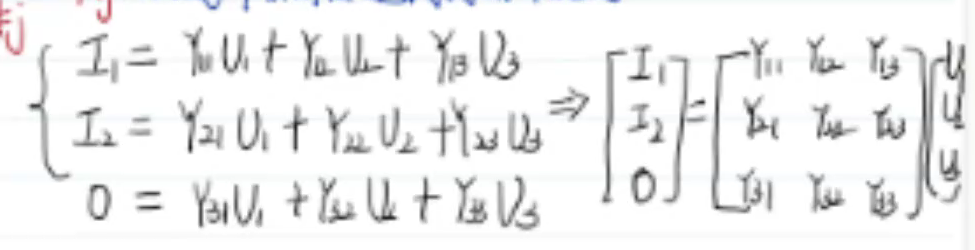 I₁ = Y₁₁U₁ + Y₁₂U₂ + Y₁₃U₃
I₂ = Y₂₁U₁ + Y₂₂U₂ + Y₂₃U₃
0 = Y₃₁U₁ + Y₃₂U₂ + Y₃₃U₃
⇒
[I₁] = [Y₁₁ Y₁₂ Y₁₃] [U₁]
[I₂] [Y₂₁ Y₂₂ Y₂₃] [U₂]
[0] [Y₃₁ Y₃₂ Y₃₃] [U₃]